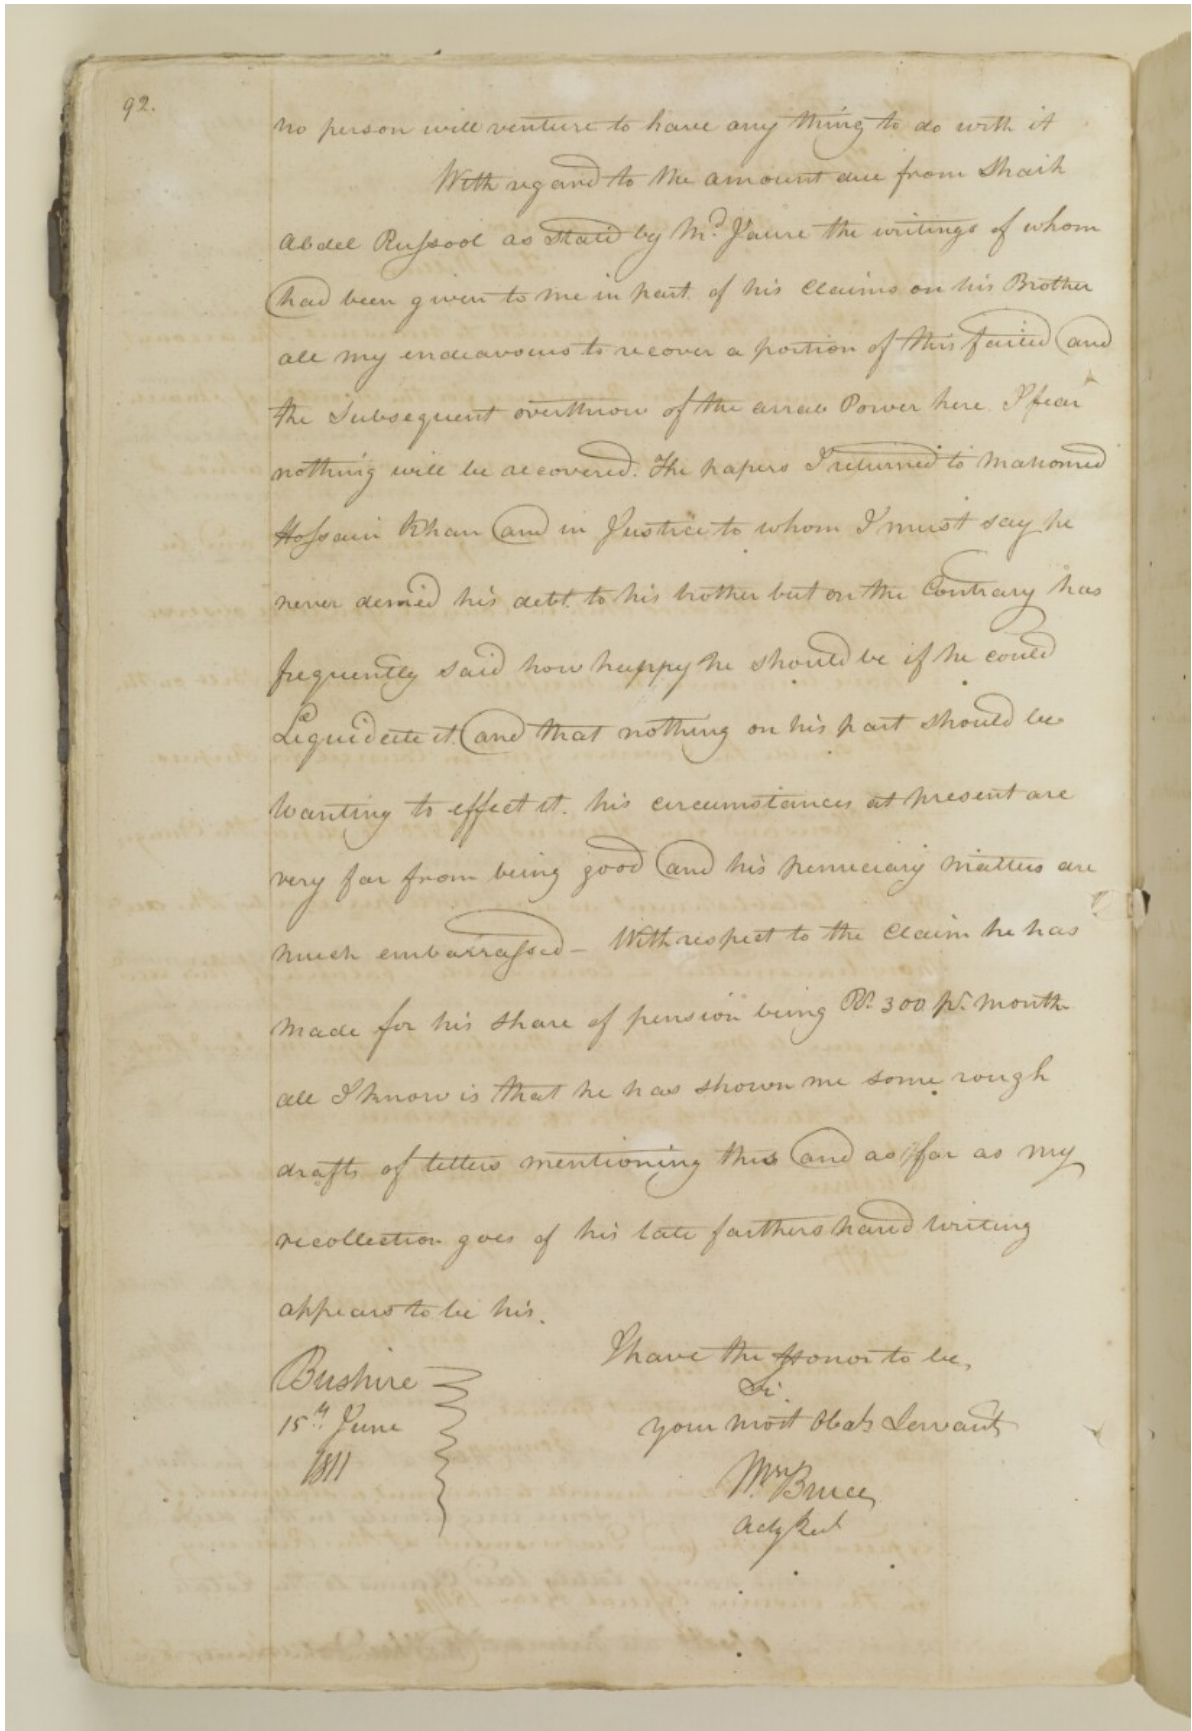 92.
no person will venture to have any thing to do with it
With regard to the amount due from Shaik
Abdel Russool as stated by Mr. the writings of whom
had been given to me in part of his Claims on his Brother
all my endeavours to recover a portion of this failed and
the Subsequent overthrow of the arrab Power here I fear
nothing will be recovered. The papers I returned to Mahomed
Hossain Khan and in Justice to whom I must say he
never denied his debt to his brother but on the Contrary has
frequently said how happy he should be if he could
Liquidate it and that nothing on his part should be
Wanting to effect it. his circumstances at present are
very far from being good and his penneciary matters are
much embarrassed – With respect to the Claim he has
made for his share of pension being Rs. 300 pr. month
all I know is that he has shown me some rough
drafts of letters mentioning this and as far as my
recollection goes of his late farthers hand writing
appears to be his.
I have the Honor to be,
Sir.
your most Obedt Servant
Bushire
15th June
1811
Wm. Bruce
Actg Rest